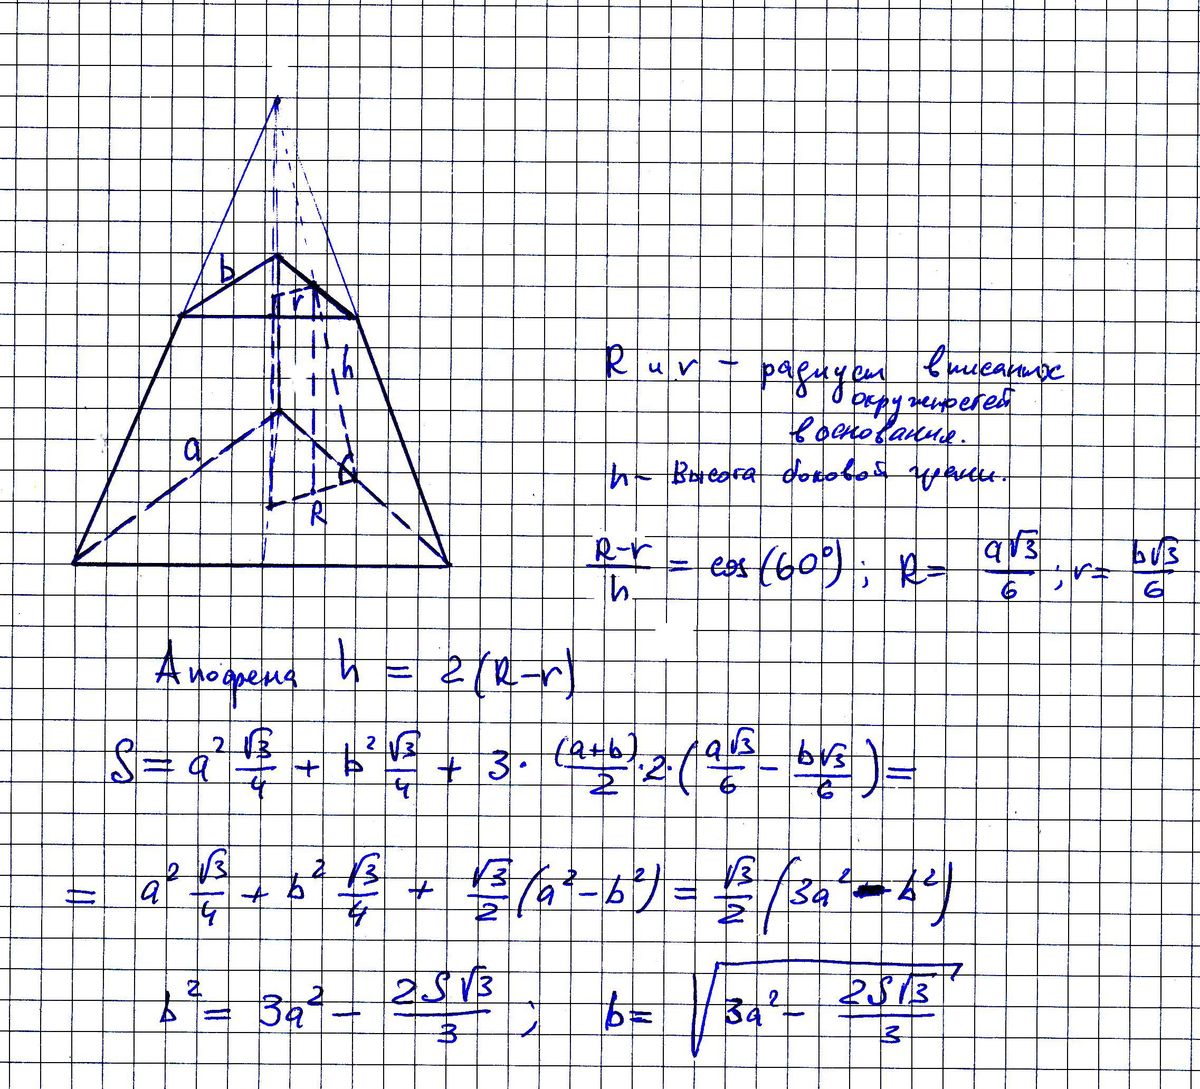 b
r
h
a
R
R и r – радиусы вписаных
окружностей
в основания.
h – Высота боковой грани.
(R-r)/h = cos(60°); R = a√3/6; r = b√3/6
Апофема h = 2(R-r)
S = a² √3/4 + b² √3/4 + 3 · (a+b)/2 · 2 · (a√3/6 - b√3/6) =
= a² √3/4 + b² √3/4 + √3/2 (a² - b²) = √3/2 (3a² - b²)
b² = 3a² - 2S√3/3; b = √(3a² - 2S√3/3)